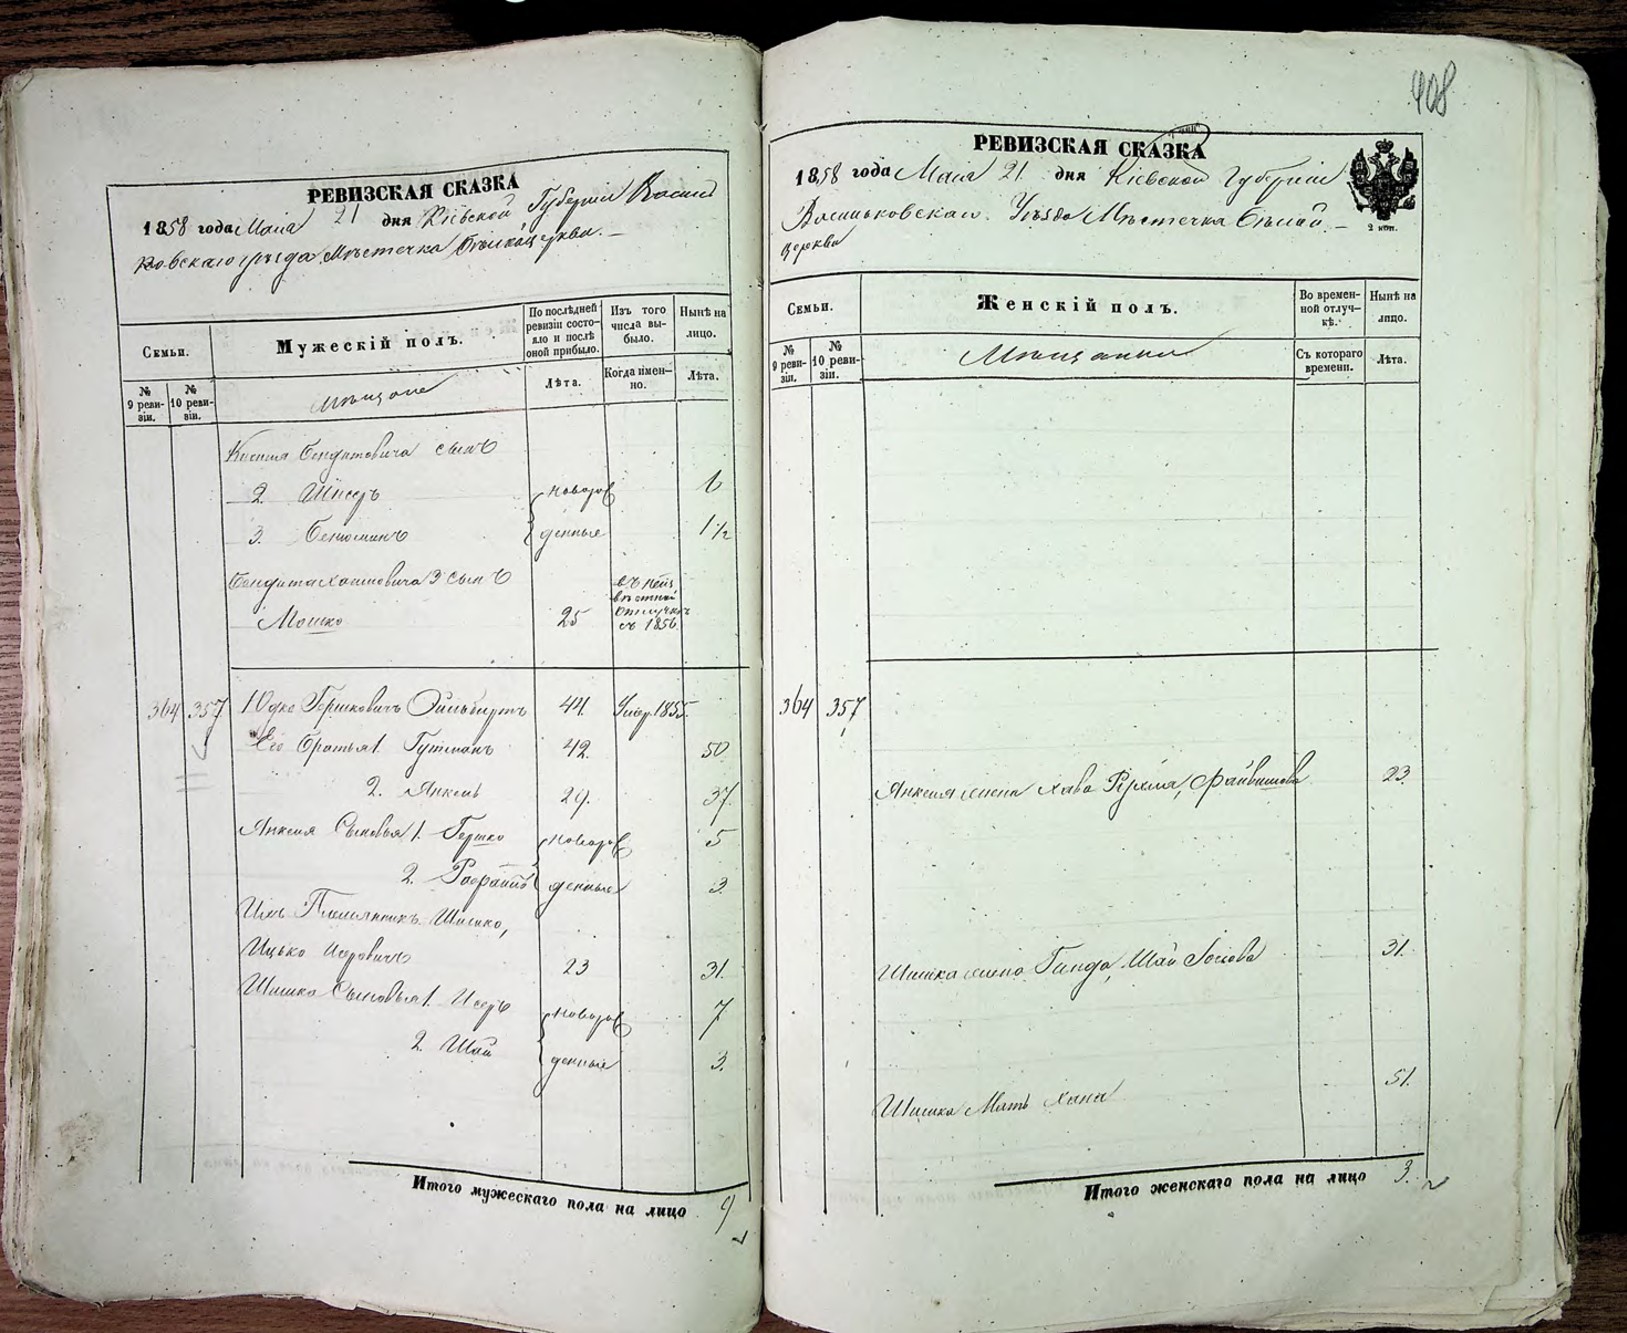 408
РЕВИЗСКАЯ СКАЗКА
1858 года Мая 21 дня Кіевской Губерніи Василь
ковскаго уѣзда Мѣстечка Бѣлой церкви. —
Семьи.
Мужескій полъ.
По послѣдней ревизіи состояло и послѣ оной прибыло.
Изъ того числа выбыло.
Нынѣ на лицо.
№ 9 ревизіи.
№ 10 ревизіи.
Мѣщане
Лѣта.
Когда именно.
Лѣта.
сынъ
2. новорож 6
3. Бенюминъ денные 1½
3 сынъ въ неиз
вѣстной
Мошко 25 отлучкѣ
съ 1856.
364 357 Юдко Гершковичъ 44. Умер. 1855.
Его Братья 1. Гутманъ 42. 50
2. Янкель 29. 37.
Янкеля Сыновья 1. Гершко новорож 5
2. денные 3.
Ихъ Племянникъ Шишко,
Ицько Исеровичъ 23 31.
Шишка Сыновья 1. Исеръ новорож 7
2. Шай денные 3.
Итого мужескаго пола на лицо 9
РЕВИЗСКАЯ СКАЗКА
1858 года Мая 21 дня Кіевской Губерніи
Васильковскаго Уѣзда Мѣстечка Бѣлой —
церкви
2 коп.
Семьи.
Женскій полъ.
Во временной отлучкѣ.
Нынѣ на лицо.
№ 9 ревизіи.
№ 10 ревизіи.
Мѣщанки
Съ котораго времени.
Лѣта.
364 357
Янкеля жена Хава Рухля, Файвишова 23.
Шишка жена Гинда, 31.
Шишка Мать Хана 51.
Итого женскаго пола на лицо 3.